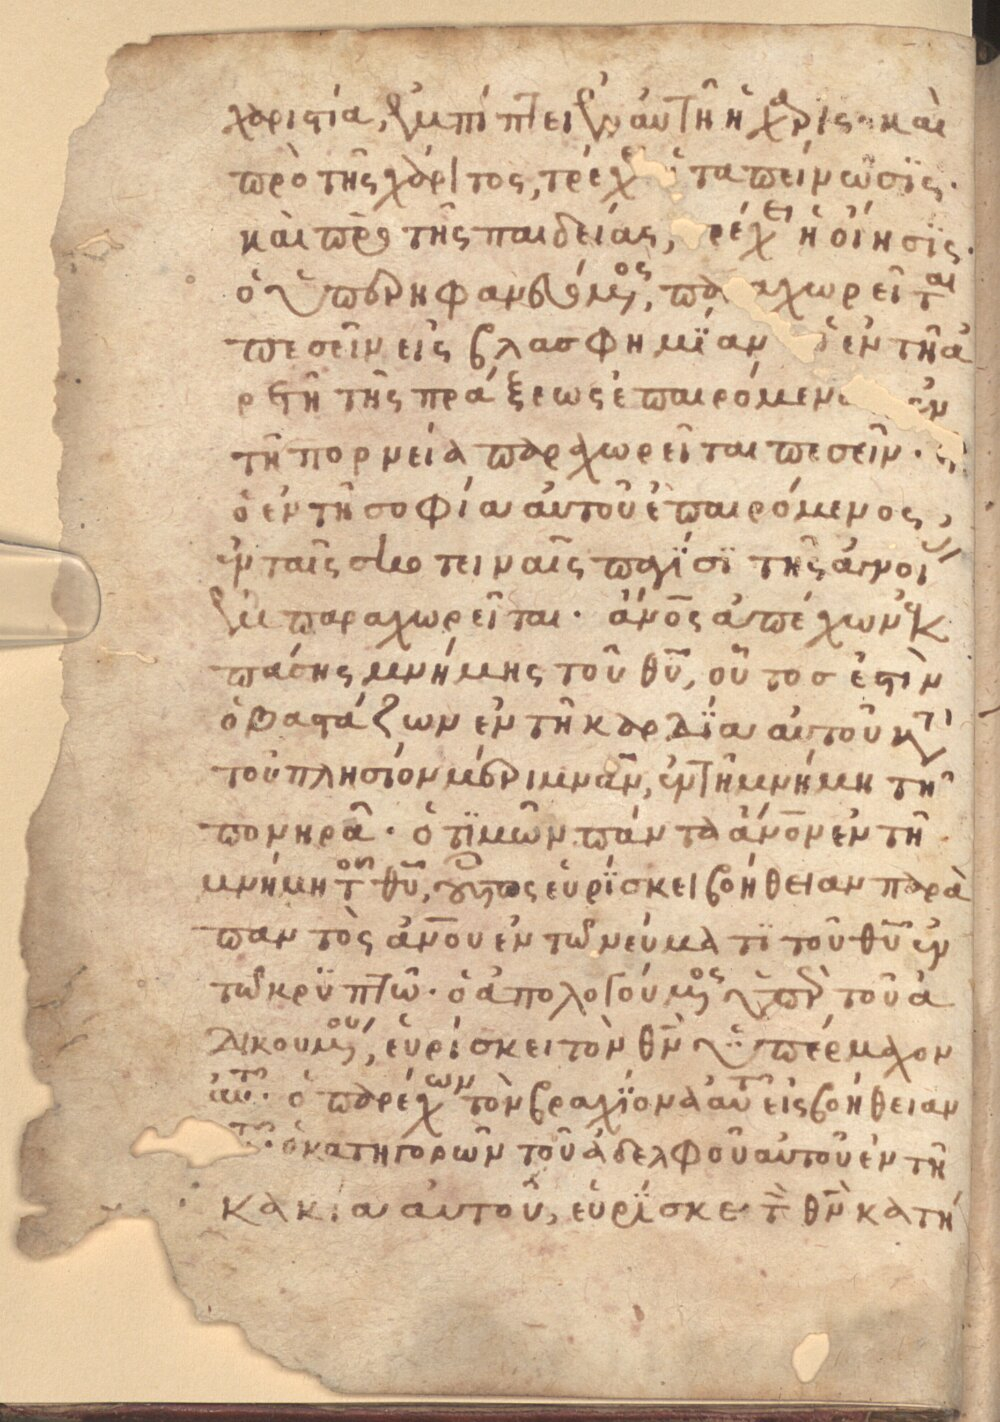 χαριστία, ἐμπίπτει ἐν αὐτῇ ἡ χάρις· καὶ
πρὸ τῆς χάριτος, τρέχ ταπείνωσϊς·
καὶ πρὸ τῆς παιδείας, ρέχει ἡ οἴησϊς·
ὁ ὑπερηφανευόμενος, πα αχωρεῖται
πεσεῖν εἰς βλασφημΐαν ὁ ἐν τῇ ἀ
ρετῇ τῆς πράξεως ἐπαιρόμενο ἐν
τῇ πορνεία παραχωρεῖται πεσεῖν·
ὁ ἐν τῇ σοφία αὐτοῦ ἐπαιρόμενος,
ἐν ταῖς σκοτειναῖς παγΐσϊ τῆς ἀγνοί
ἐμπαραχωρεῖται· ἄνο̅ς ἀπέχων ἐκ
πάσης μνήμης τοῦ θυ̅, οὗτοσ ἐστὶν
ὁ βαστάζων ἐν τῇ καρδΐα αὐτοῦ κατὰ
τοῦ πλησίον μέριμναν, ἐν τῇ μνήμη τῇ
πονηρᾶ· ὁ τϊμῶν πάντα ἄνο̅ν ἐν τῇ
μνήμη τοῦ θυ̅, οὗτος εὑρΐσκει βοήθειαν παρὰ
παντὸς ἀνο̅υ ἐν τῶ νεύματϊ τοῦ θυ̅ ἐν
τῶ κρϋπτῶ· ὁ ἀπολογούμενος ὑπὲρ τοῦ ἀ
δικουμένου, εὑρίσκει τὸν θν̅ ὑπέρμαχον
αὐτοῦ· ὁ παρέχων τὸν βραχΐονα αὐτοῦ εἰς βοήθειαν
τοῦ· ὁ κατηγορῶν τοῦ ἀδελφοῦ αὐτοῦ ἐν τῇ
κακία αὐτοῦ, εὑρΐσκει τὸν θν̅ κατή